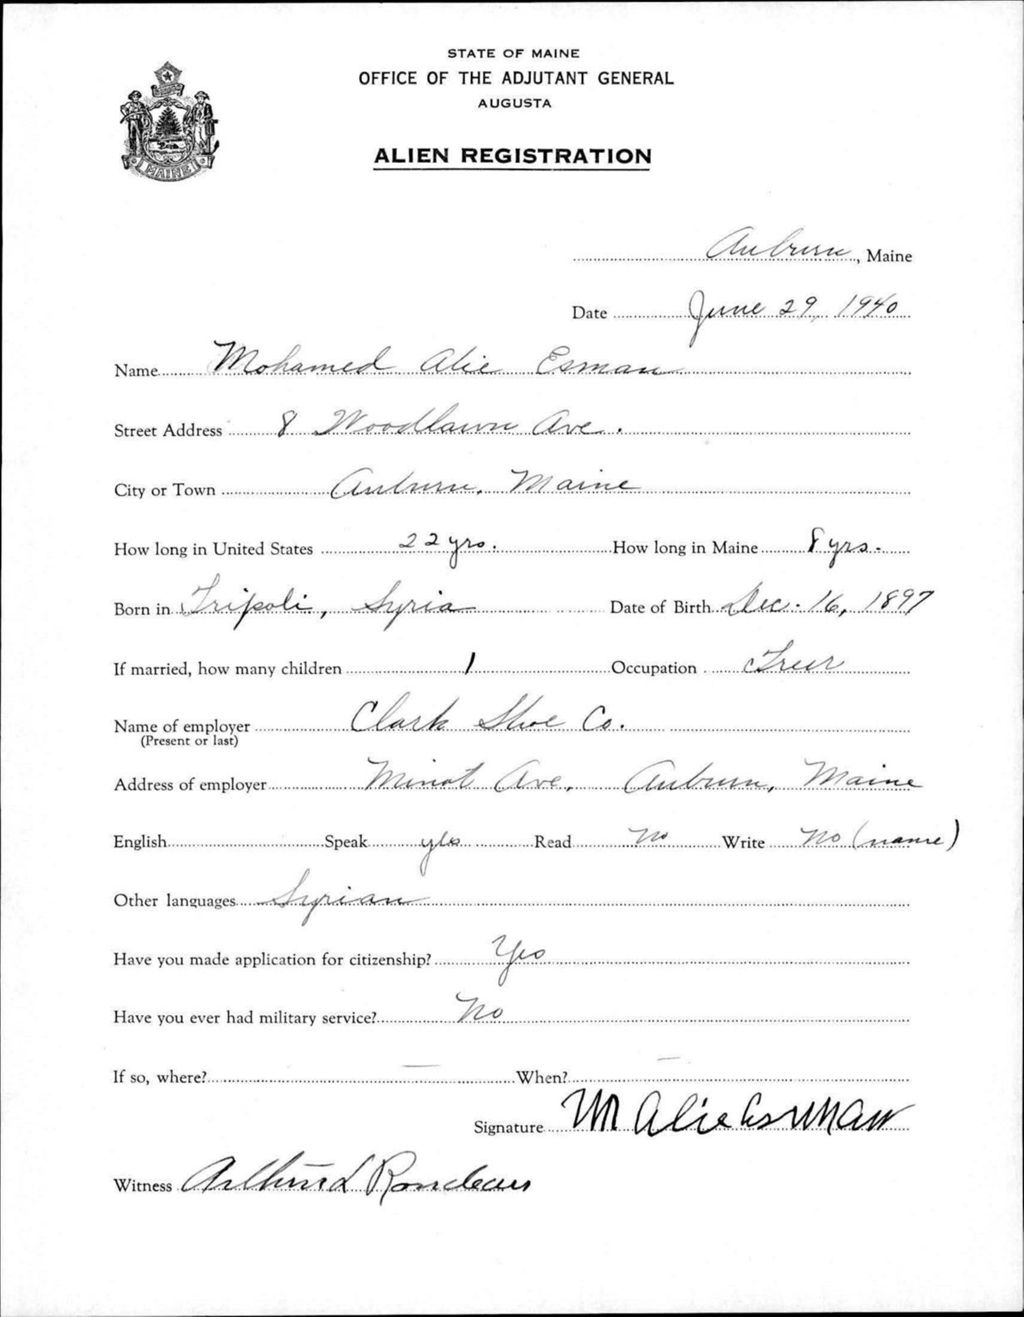 STATE OF MAINE
OFFICE OF THE ADJUTANT GENERAL
AUGUSTA
ALIEN REGISTRATION
MAINE
Auburn, Maine
Date June 29, 1940
Name Mohamed Alie Esman
Street Address 8 Woodlawn Ave.
City or Town Auburn, Maine
How long in United States 22 yrs. How long in Maine 8 yrs.
Born in Tripoli, Syria Date of Birth Dec. 16, 1897
If married, how many children 1 Occupation Treer
Name of employer Clark Shoe Co.
(Present or last)
Address of employer Minot Ave, Auburn, Maine
English Speak yes Read No Write No (name)
Other languages Syrian
Have you made application for citizenship? Yes
Have you ever had military service? No
If so, where? — When? —
Signature M Alie Esman
Witness Rondeau